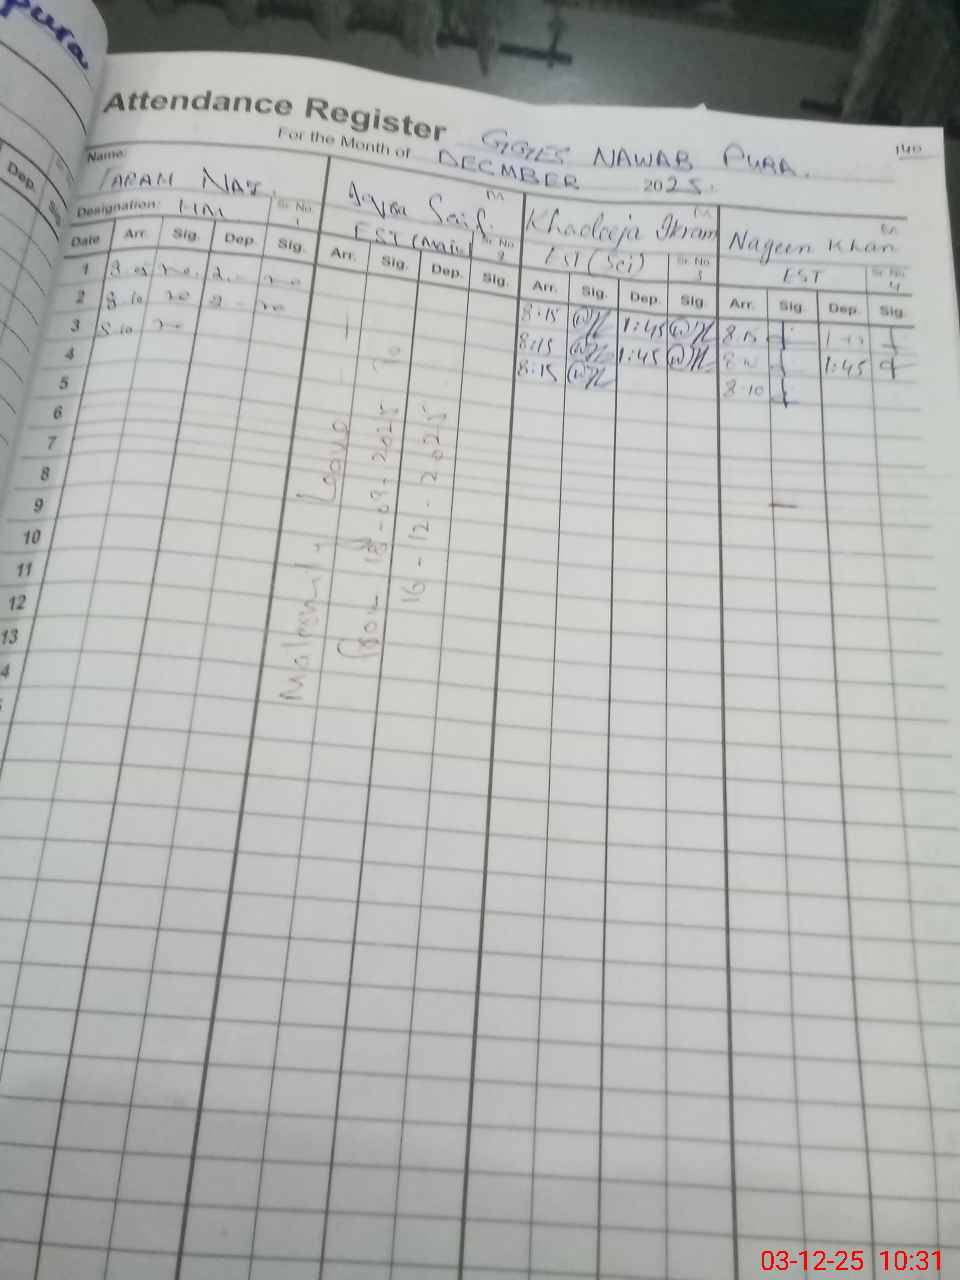 pura
Attendance Register GGES NAWAB PURA.
For the Month of DECMBER 2025.
Name:
NAZ.
Saif.
Khadeeja Ikram
Nageen Khan
Designation: HM Sr. No
EST ( Sr. No 2
EST (Sci) Sr. No 3
EST Sr. No 4
Date Arr. Sig. Dep. Sig. Arr. Sig. Dep. Sig. Arr. Sig. Dep. Sig. Arr. Sig. Dep. Sig.
1 8:15 1:45 8:15
2 8:10 8:15 1:45 1:45
3 8:10 8:15 8:10
4
5
6
7
8
9
10
11
12
13
4
Leave
From 18-09-2025 To
16-12-2025
Dep.
03-12-25 10:31